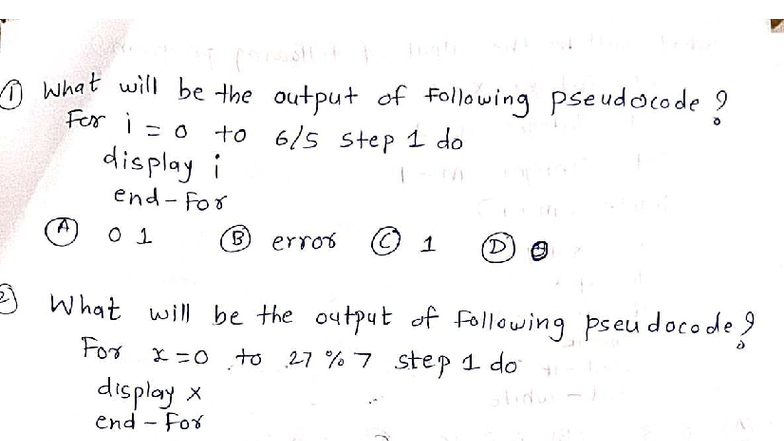 ① What will be the output of following pseudocode?
For i = 0 to 6/5 step 1 do
display i
end-for
Ⓐ 0 1 Ⓑ error Ⓒ 1 Ⓓ 0
② What will be the output of following pseudocode?
For x = 0 to 27 % 7 step 1 do
display x
end-for